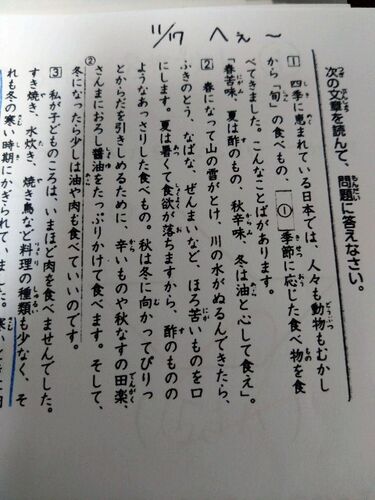 11/17 へぇ〜
次の文章を読んで、問題に答えなさい。
1 四季に恵まれている日本では、人々も動物もむかし
から「旬」の食べもの、① 季節に応じた食べ物を食
べてきました。こんなことばがあります。
「春苦味、夏は酢のもの 秋辛味、冬は油と心して食え」。
2 春になって山の雪がとけ、川の水がぬるんできたら、
ふきのとう、なばな、ぜんまいなど、ほろ苦いものを口
にします。夏は暑くて食欲が落ちますから、酢のものの
ようなあっさりした食べもの。秋は冬に向かってぴりっ
とからだを引きしめるために、辛いものや秋なすの田楽、
さんまにおろし醤油をたっぷりかけて食べます。そして、
②冬になったら少しは油や肉も食べていいのです。
3 私が子どものころは、いまほど肉を食べませんでした。
すき焼き、水炊き、焼き鳥など料理の種類も少なく、そ
れも冬の寒い時期にかぎられていました。